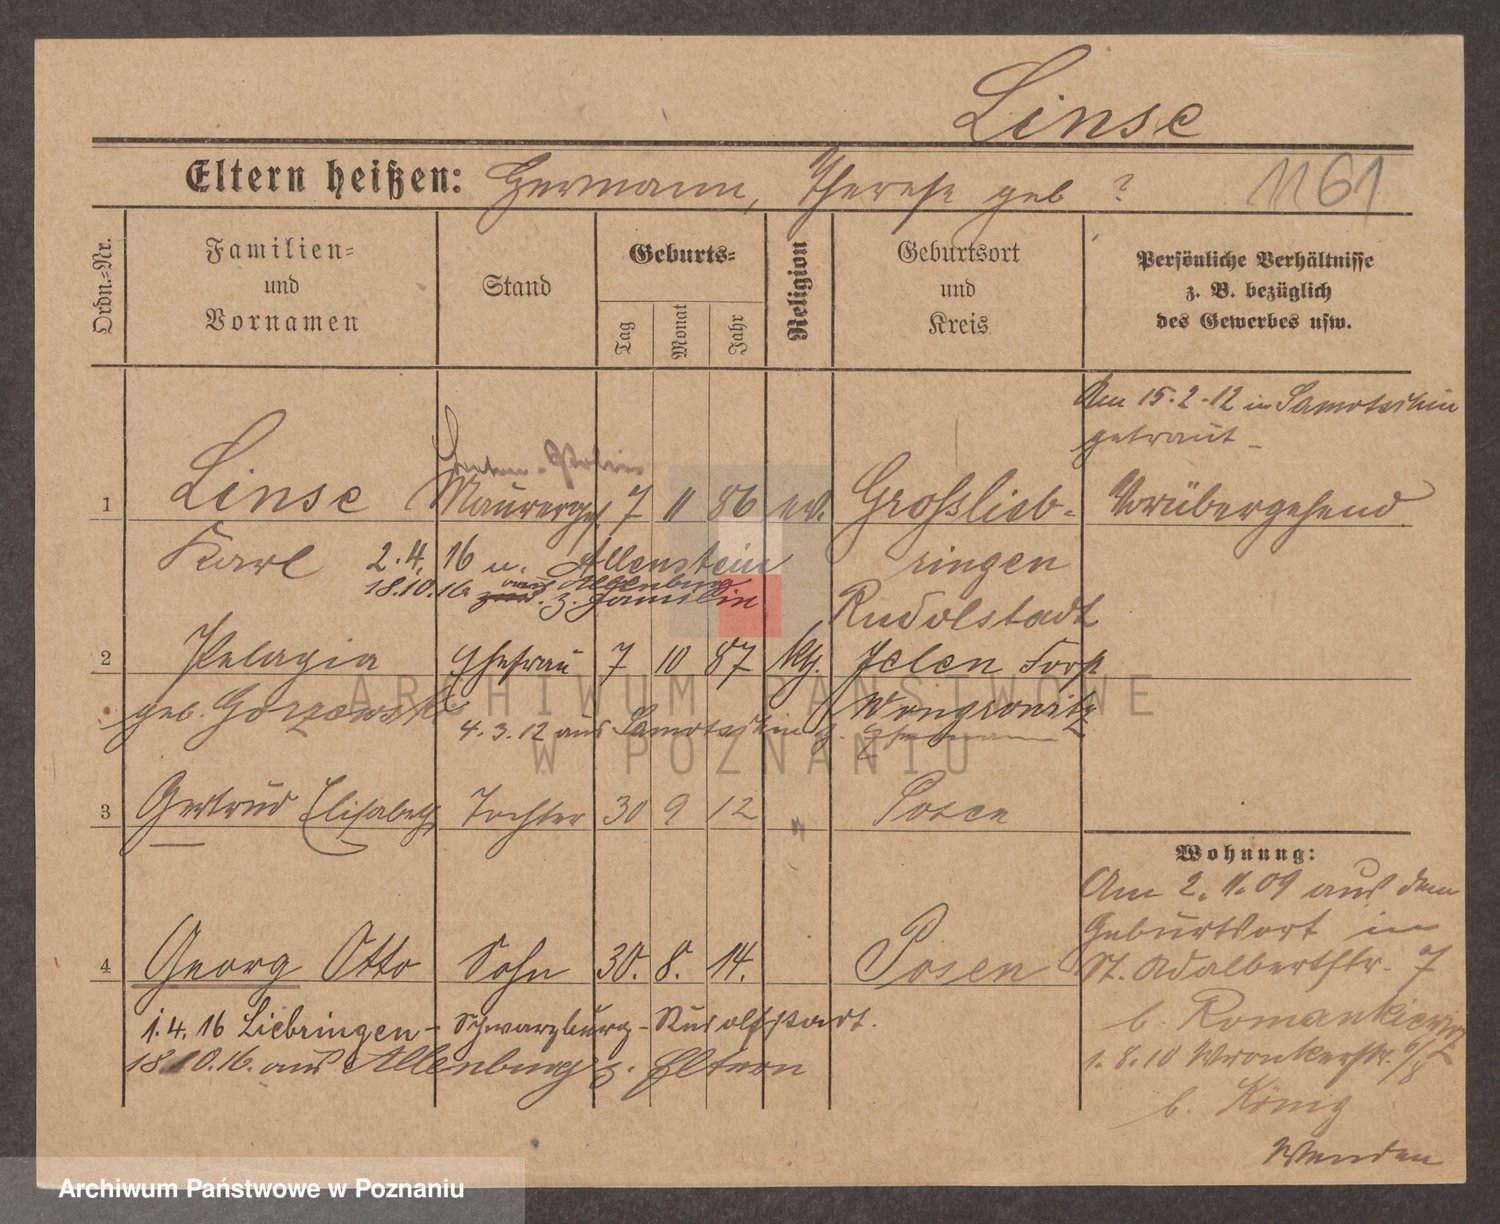 Linse
Eltern heißen: Hermann, Therese geb ?
1161
Ordn.-Nr.
Familien-
und
Vornamen
Stand
Geburts-
Tag
Monat
Jahr
Religion
Geburtsort
und
Kreis
Persönliche Verhältnisse
z. B. bezüglich
des Gewerbes usw.
Am 15.2.12 in Samotschin
getraut
1 Linse Maurerges 7 11 86 ev. Großlieb- Vorübergehend
Karl 2.4.16 u. Allenstein ringen
18.10.16 aus Altenburg
z. Familie
Rudolstadt
2 Pelagia Ehefrau 7 10 87 kth. Jelen Forst
geb. Gorzewski Wongrowitz
4.3.12 aus Samotschin z. Ehemann
3 Gertrud Elisabeth Tochter 30 9 12 " Posen
Wohnung:
Am 2.11.09 aus dem
Geburtsort in
St. Adalbertstr. 7
b. Romankiewicz
1.8.10 Wronkerstr. 6/8
b. König
Wenden
4 Georg Otto Sohn 30. 8. 14. Posen
1.4.16 Liebringen - Schwarzburg - Rudolfstadt.
18.10.16. aus Altenburg z. Eltern
ARCHIWUM PAŃSTWOWE
W POZNANIU
Archiwum Państwowe w Poznaniu